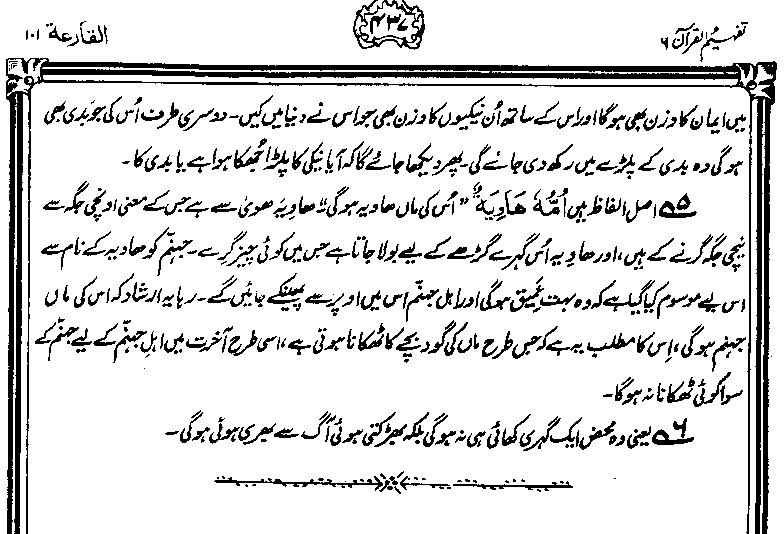 تفہیم القرآن ۶
۴۳۷
القارعة ۱۰۱
میں ایمان کا وزن بھی ہوگا اور اس کے ساتھ اُن نیکیوں کا وزن بھی جو اس نے دنیا میں کیں۔ دوسری طرف اُس کی جو بدی بھی
ہوگی وہ بدی کے پلڑے میں رکھ دی جائے گی۔ پھر دیکھا جائے گا کہ آیا نیکی کا پلڑا جُھکا ہوا ہے یا بدی کا۔
۵ اصل الفاظ ہیں اُمُّهٗ هَاوِيَةٌ ”اُس کی ماں ھاویہ ہوگی“ ھاوِیَہ ھویٰ سے ہے جس کے معنی اونچی جگہ سے
نیچی جگہ گرنے کے ہیں، اور ھاویہ اُس گہرے گڑھے کے لیے بولا جاتا ہے جس میں کوئی چیز گرے۔ جہنّم کو ھاویہ کے نام سے
اس لیے موسوم کیا گیا ہے کہ وہ بہت عمیق ہوگی اور اہلِ جہنّم اس میں اوپر سے پھینکے جائیں گے۔ رہا یہ ارشاد کہ اس کی ماں
جہنم ہوگی، اِس کا مطلب یہ ہے کہ جس طرح ماں کی گود بچے کا ٹھکانا ہوتی ہے، اسی طرح آخرت میں اہلِ جہنّم کے لیے جہنّم کے
سوا کوئی ٹھکانا نہ ہوگا۔
۶ یعنی وہ محض ایک گہری کھائی ہی نہ ہوگی بلکہ بھڑکتی ہوئی آگ سے بھری ہوئی ہوگی۔